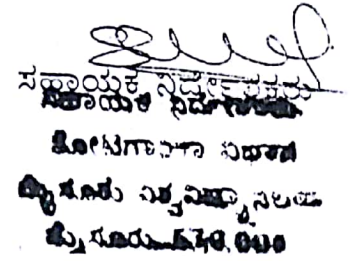 ಸಹಾಯಕ ನಿರ್ದೇಶಕರು
ಸಹಾಯಕ ನಿರ್ದೇಶಕರು
ತೋಟಗಾರಿಕಾ ವಿಭಾಗ
ಮೈಸೂರು ವಿಶ್ವವಿದ್ಯಾನಿಲಯ
ಮೈಸೂರು